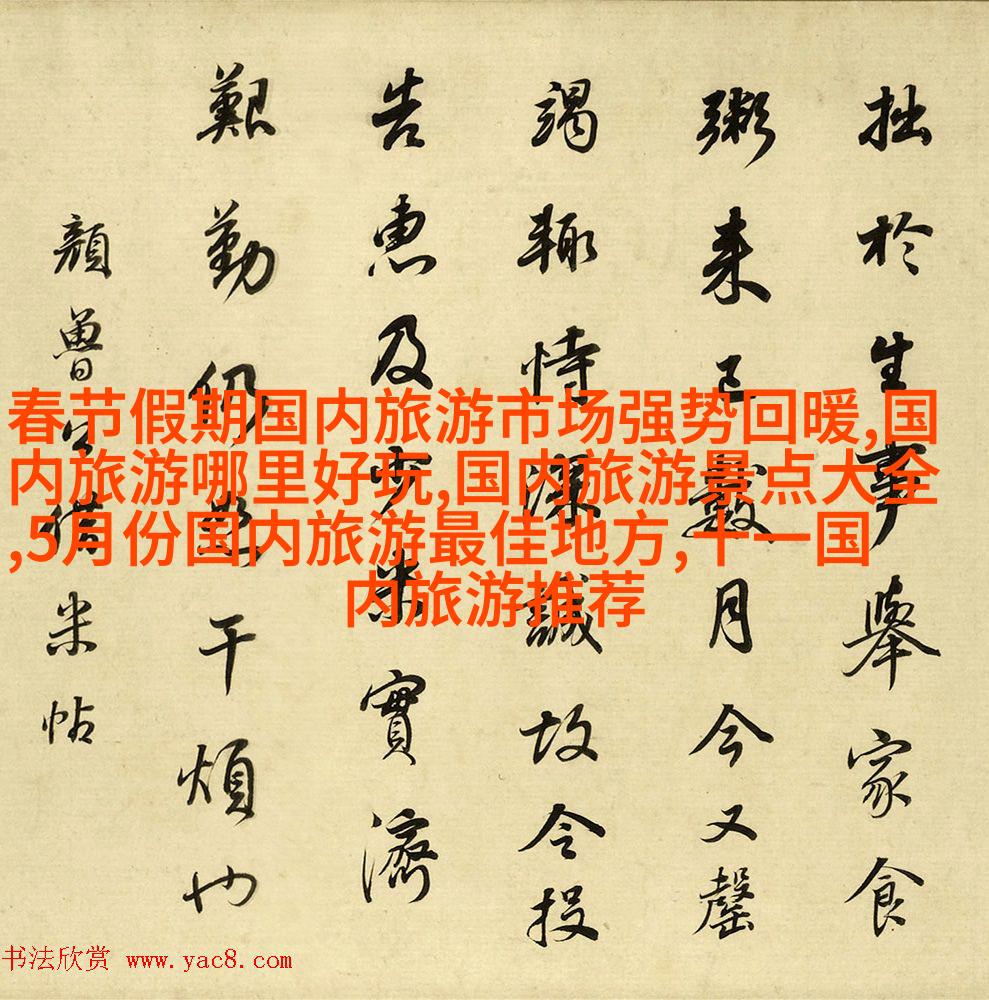 拙於生事舉家食
粥来已數月今又罄
竭輙恃深誠故令投
告惠及少米實濟
艱勤仍恕干煩也
顔魯公借米帖
春节假期国内旅游市场强势回暖,国
内旅游哪里好玩,国内旅游景点大全
,5月份国内旅游最佳地方,十一国
内旅游推荐
书法欣赏 www.yac8.com